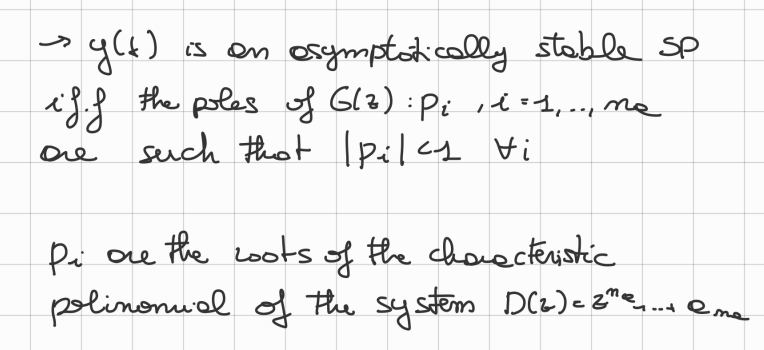 → y(t) is an asymptotically stable SP
if.f the poles of G(z) : pi , i=1,.., na
are such that |pi|<1 ∀i
pi are the roots of the characteristic
polinomial of the system D(z)= z^na+...+ a_na